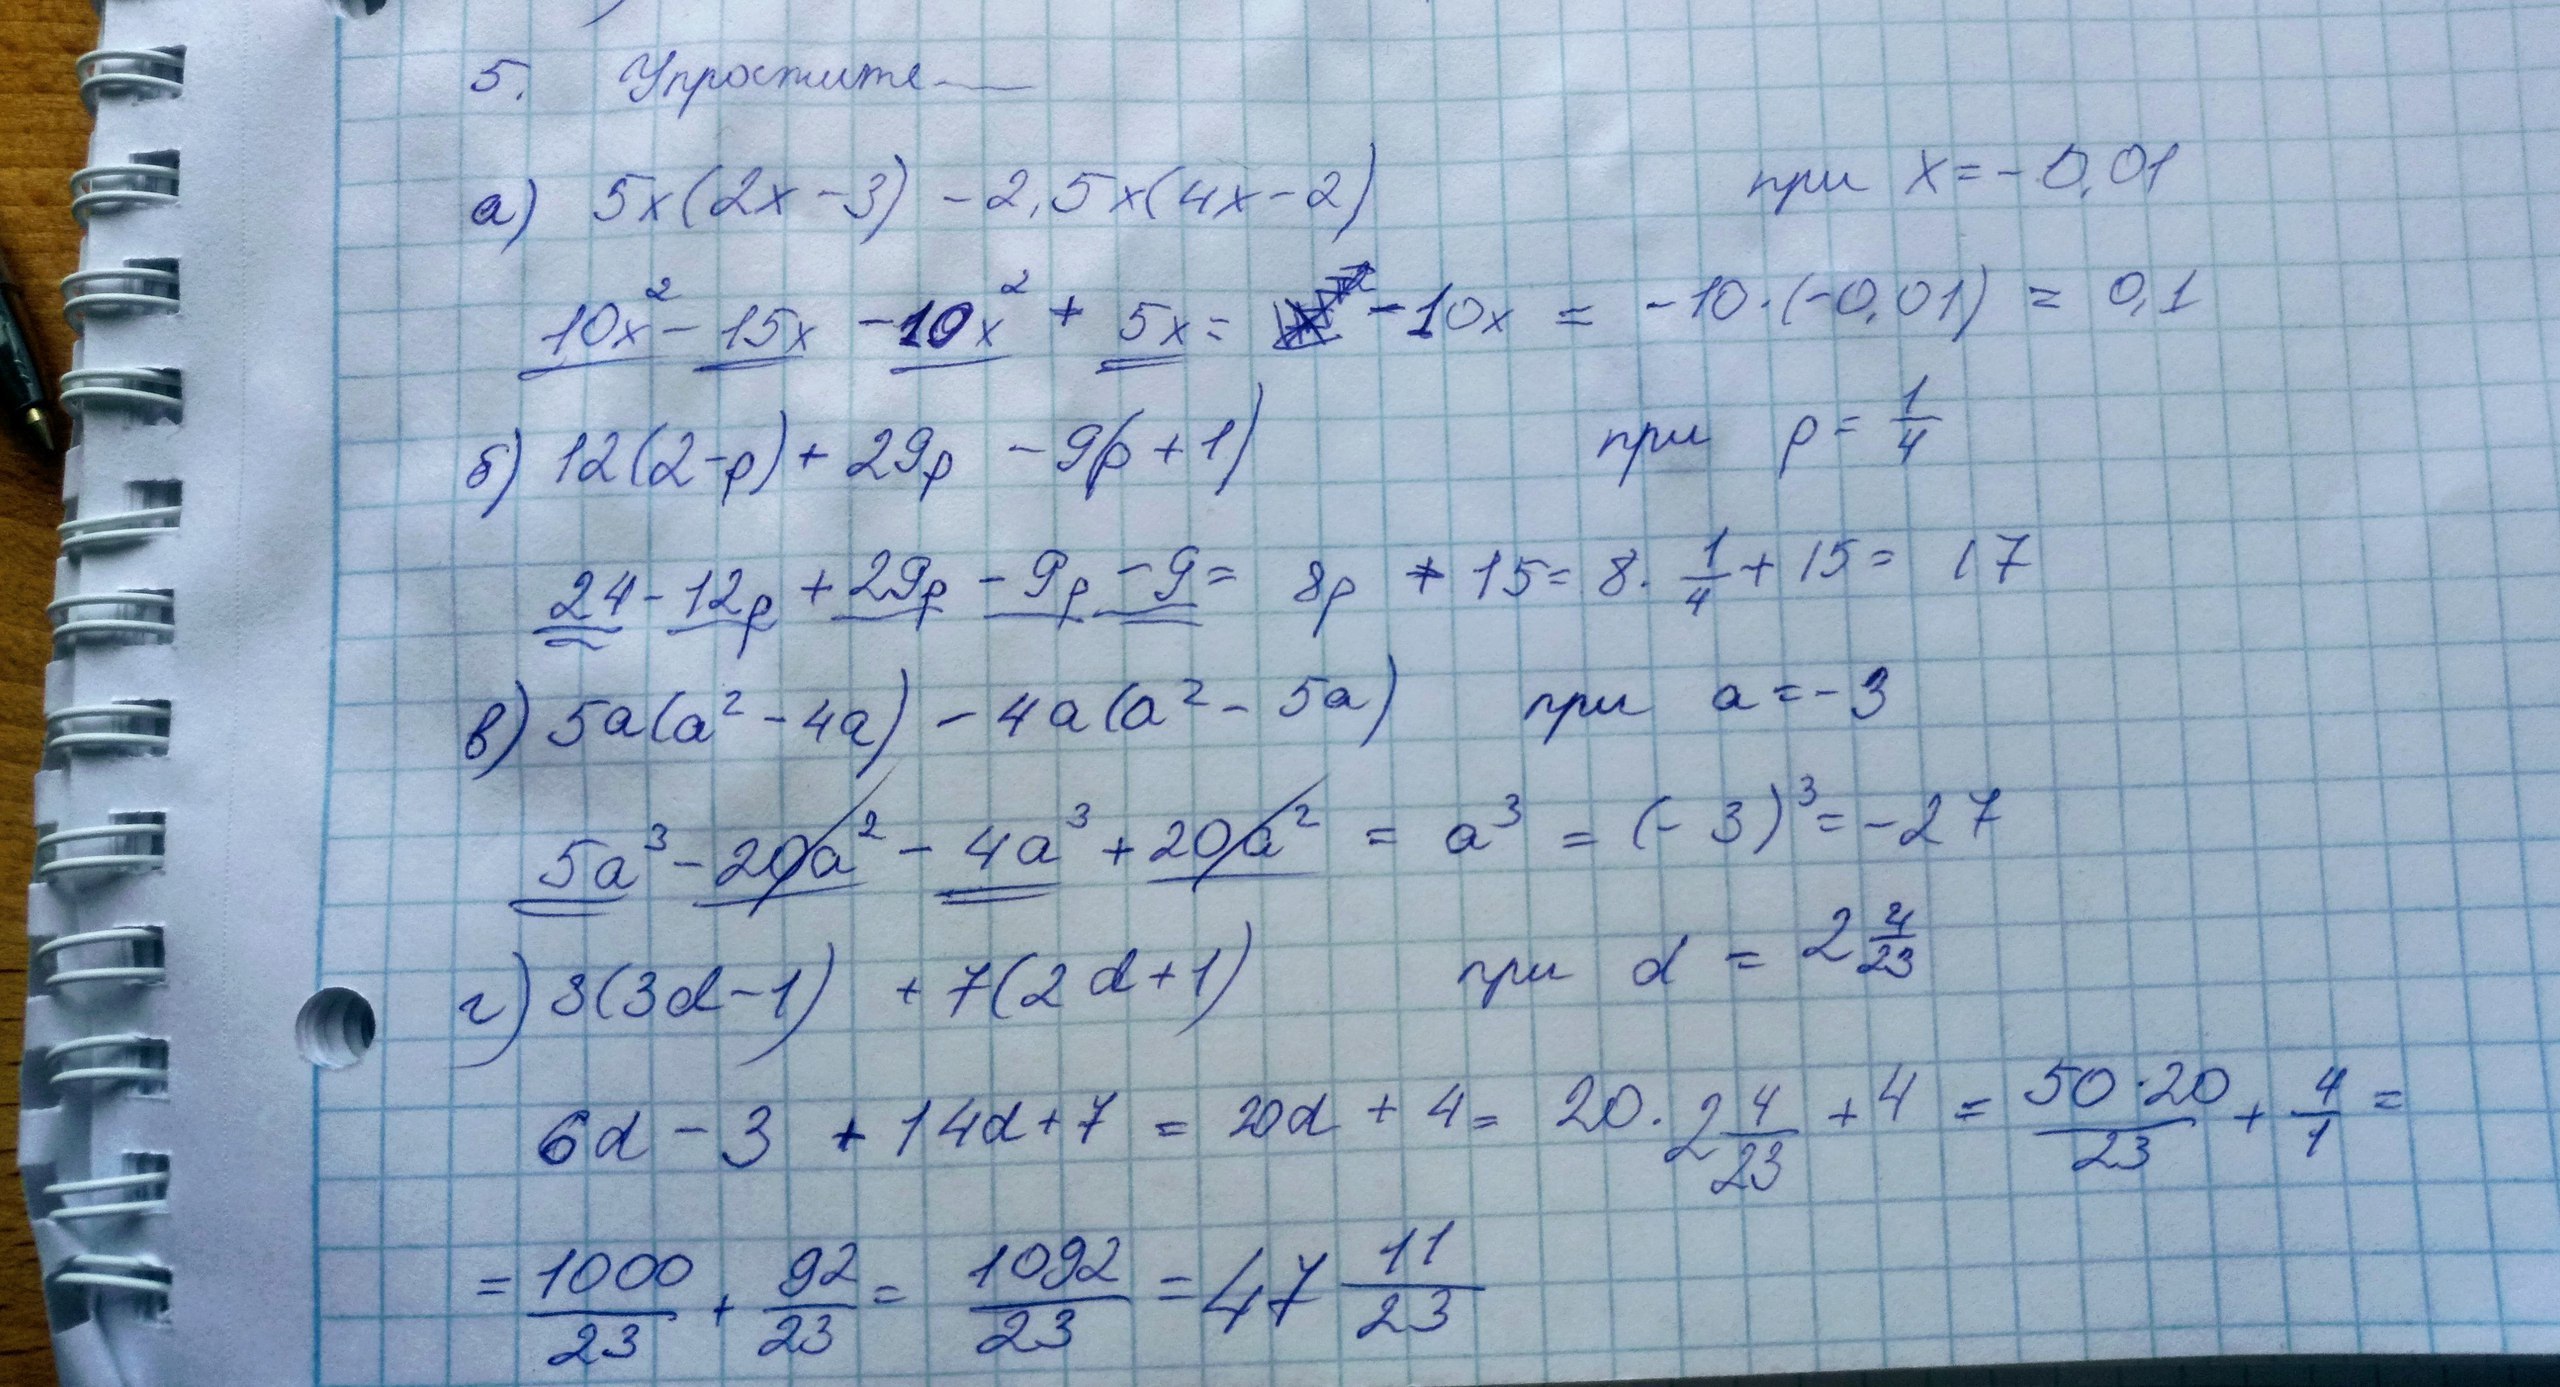 5. Упростите
а) 5x(2x-3) -2,5x(4x-2) при x=-0,01
10x² - 15x - 10x² + 5x = -10x = -10·(-0,01) = 0,1
б) 12(2-p) + 29p - 9(p+1) при p = 1/4
24 - 12p + 29p - 9p - 9 = 8p + 15 = 8·1/4 + 15 = 17
в) 5a(a² - 4a) - 4a(a² - 5a) при a = -3
5a³ - 20a² - 4a³ + 20a² = a³ = (-3)³ = -27
г) 3(3d-1) + 7(2d+1) при d = 2 4/23
6d - 3 + 14d + 7 = 20d + 4 = 20·2 4/23 + 4 = 50·20/23 + 4/1 =
= 1000/23 + 92/23 = 1092/23 = 47 11/23